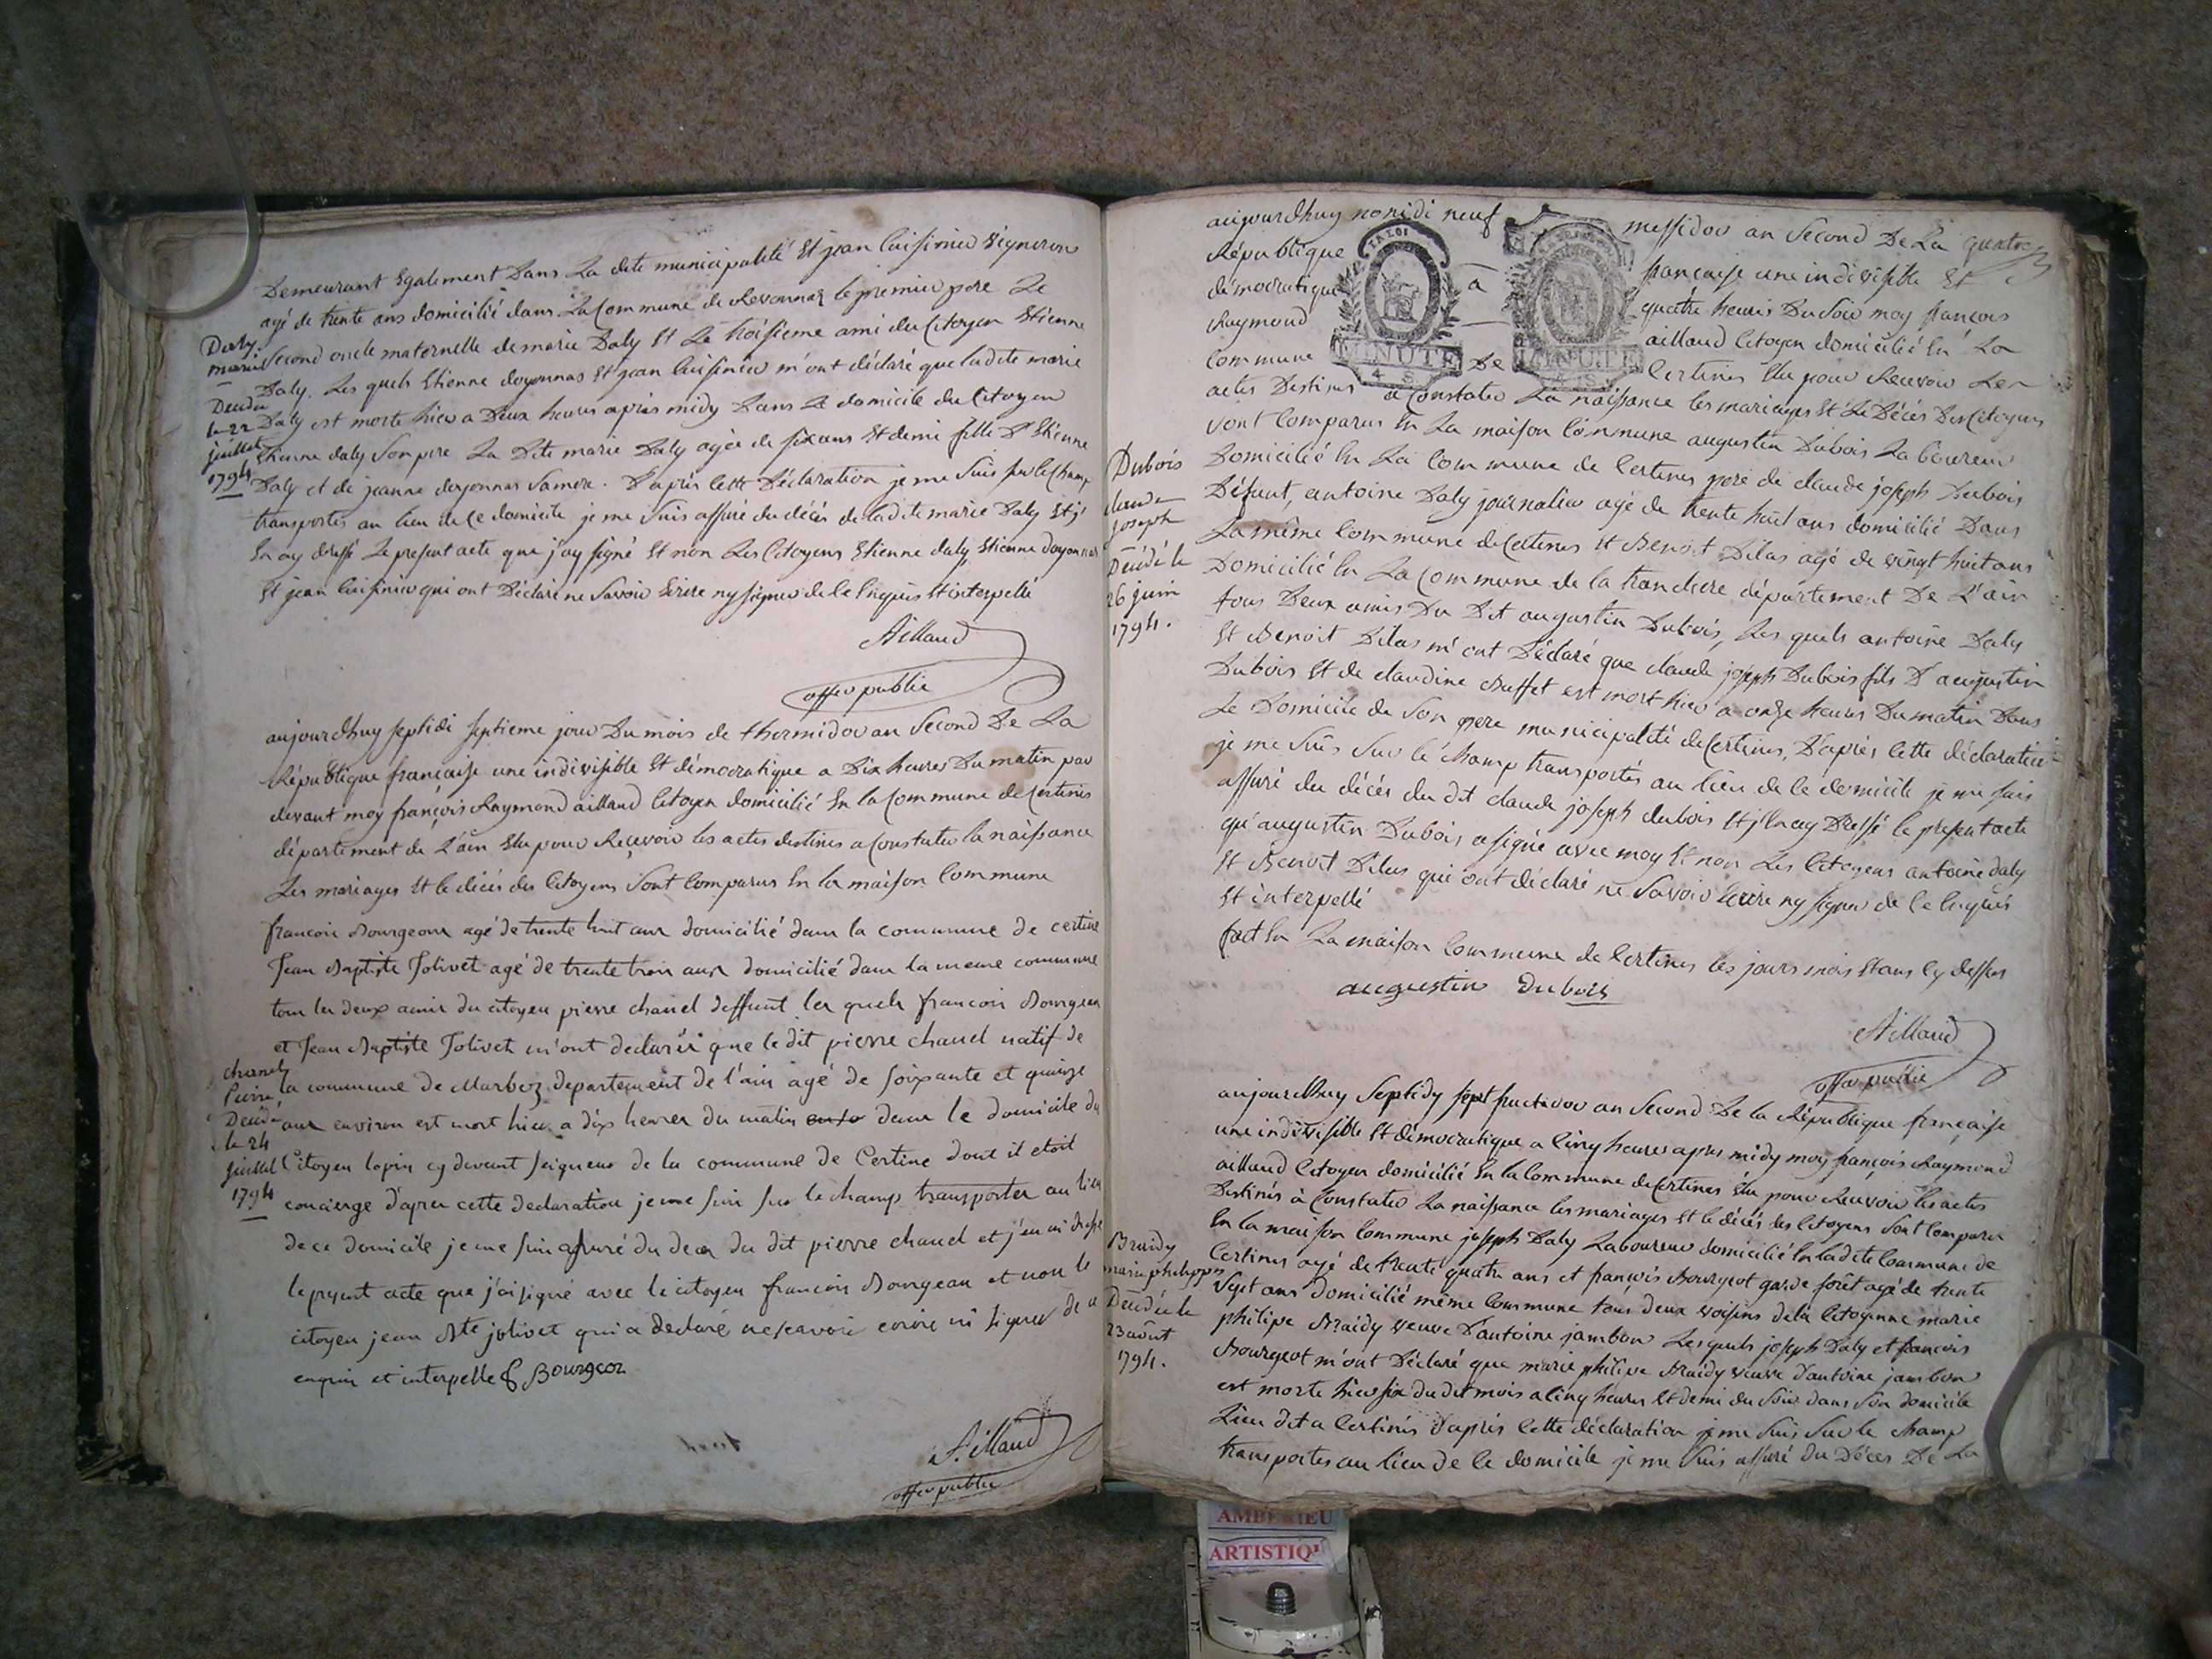 Demeurant Egalement Dans La dite municipalité Et jean Cuisinier vigneron
agé de trente ans domicilié dans La Commune de Revonnaz le premier pere Le
Second oncle maternelle de marie Daly Et Le troisieme ami du Citoyen Etienne
Daly. Les quels Etienne doyonnas Et jean Cuisinier m'ont déclaré que ladite marie
Daly est morte hier a Deux heures après midy Dans Le domicile du Citoyen
Etienne daly Son pere La Dite marie Daly agée de six ans Et demi fille D'Etienne
Daly et de jeanne doyonnas Sa mere. D'après cette Déclaration je me Suis sur le Champ
transportés au lieu de Ce domicile je me Suis assuré du décès de ladite marie Daly Et j'
En ay dressé Le present acte que j'ay signé Et non Les Citoyens Etienne daly, Etienne doyonnas
Et jean Cuisinier qui ont Déclaré ne Savoir Ecrire ny signer de Ce Enquis Et interpellé
Daly
marie
Décédée
le 22
juillet
1794
Aillaud
offier public
aujourdhuy septidi septieme jour Du mois de thermidor an Second De La
République française une indivisible Et démocratique a Dix heures Du matin par
devant moy françois Raymond aillaud Citoyen domicilié En la Commune de Certines
département de L'ain Elu pour Reçevoir les actes destinés a Constater la naissance
Les mariages Et le décès des Citoyens Sont Comparus En la maison Commune
francois Bourgeon agé de trente huit ans domicilié dans la commune de certine
Jean Baptiste Jolivet agé de trente trois ans domicilié dans la meme commune
tous les deux amis du citoyen pierre chanel deffunt les quels francois Bourgeon
et Jean Baptiste Jolivet m'ont declarés que le dit pierre chanel natif de
la commune de Marboz departement de l'ain agé de soixante et quinze
ans environ est mort hier a dix heures du matin dans le domicile du
Citoyen lopin cy devant seigneur de la commune de Certine dont il etoit
concierge d'apres cette declaration je me suis sur le champ transporter au lieu
de ce domicile je me suis assuré du deces du dit pierre chanel et j'en ai dressé
le present acte que j'ai signé avec le citoyen francois Bourgeon et non le
citoyen jean Bte jolivet qui a declaré ne scavoir ecrire ni signer de ce
enquis et interpelle
Bourgeon
chanel
Pierre
Décédé
le 24
juillet
1794
Aillaud
offier public
aujourdhuy nonidi neuf messidor an Second De La quatre
République française une indivisible Et
démocratique a quatre heures Du Soir moy françois
Raymond aillaud Citoyen domicilié En La
Commune De Certines Elu pour Recevoir Les
LA LOI
MINUTE
4 S
MINUTE
4 S
actes Destinés a Constater La naissance les mariages Et Le Décès Des Citoyens
Sont Comparus En La maison Commune augustin Dubois Laboureur
Domicilié En La Commune de Certines pere de claude joseph Dubois
Défunt, antoine Daly journalier agé de trente huit ans domicilié Dans
La même Commune de Certines Et Benoit Dilas agé de vingt huit ans
Domicilié En La Commune de la trancliere département De L'ain
tous Deux amis Du Dit augustin Dubois, Les quels antoine Daly
Et Benoit Dilas m'ont Déclaré que claude joseph Dubois fils D'augustin
Dubois Et de claudine Buffet est mort hier a onze heures Du matin Dans
Le Domicile de Son pere municipalité de Certines, D'après Cette déclaration
je me Suis Sur le champ transportés au lieu de Ce domicile je me Suis
assuré du décès du dit claude joseph dubois Et j'En ay Dressé le present acte
qu'augustin Dubois a signé avec moy Et non Les Citoyens antoine daly
Et Benoit Dilas qui ont déclaré ne Savoir Ecrire ny signer de Ce Enquis
Et interpellé
fait En La maison Commune de Certines les jours mois Et ans Cy dessus
Dubois
claude
joseph
Décédé le
26 juin
1794.
augustin dubois
Aillaud
offier public
aujourdhuy Septidy sept fructidor an Second De la République française
une indivisible Et démocratique a Cinq heures apres midy moy françois Raymond
aillaud Citoyen domicilié En la Commune de Certines Elu pour Recevoir les actes
Destinés à Constater La naissance les mariages Et le décès des Citoyens Sont Comparu
En la maison Commune joseph Daly Laboureur domicilié En ladite Commune de
Certines agé de trente quatre ans et françois Bourgeot garde forêt agé de trente
Sept ans domicilié même Commune tous deux voisins de la Citoyenne marie
philipe Braidy veuve D'antoine jambon Lesquels joseph Daly et françois
Bourgeot m'ont Déclaré que marie philipe Braidy veuve D'antoine jambon
est morte hier six du dit mois a Cinq heures Et demi du Soir dans Son domicile
Lieu dit a Certines D'après Cette déclaration je me Suis Sur le champ
transportés au lieu de Ce domicile je me Suis assuré Du Décès De La
Braidy
marie philippe
Décédée le
23 août
1794.
AMBERIEU
ARTISTIQ